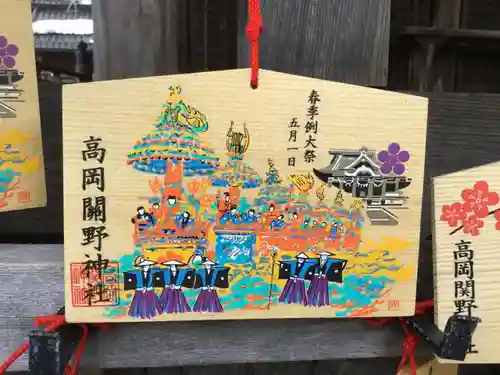 春季例大祭
五月一日
高岡關野神社
高岡関野
社